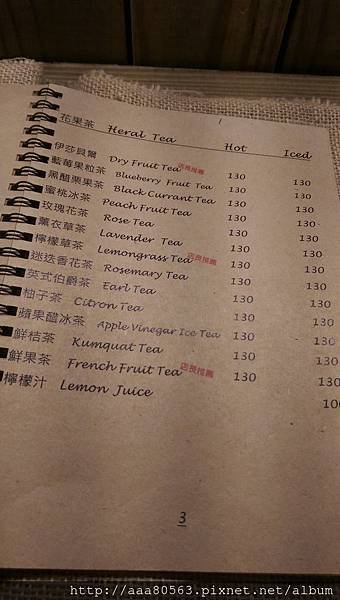 花果茶 Heral Tea Hot Iced
伊莎貝爾 Dry Fruit Tea 店長推薦 130 130
藍莓果粒茶 Blueberry Fruit Tea 130 130
黑醋栗果茶 Black Currant Tea 130 130
蜜桃冰茶 Peach Fruit Tea 130 130
玫瑰花茶 Rose Tea 130 130
薰衣草茶 Lavender Tea 130 130
檸檬草茶 Lemongrass Tea 店長推薦 130 130
迷迭香花茶 Rosemary Tea 130 130
英式伯爵茶 Earl Tea 130 130
柚子茶 Citron Tea 130 130
蘋果醋冰茶 Apple Vinegar Ice Tea 130 130
鮮桔茶 Kumquat Tea 130 130
鮮果茶 French Fruit Tea 店長推薦 130 130
檸檬汁 Lemon Juice
3
http://aaa80563.pixnet.net/album